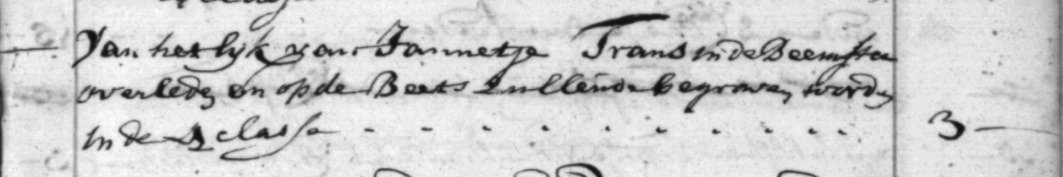 Van het lyk van Jannetje Trans in de Beemster
overleden en op de Beets zullende begraven worden
in de 4 classe - - - - - - - - - 3 -